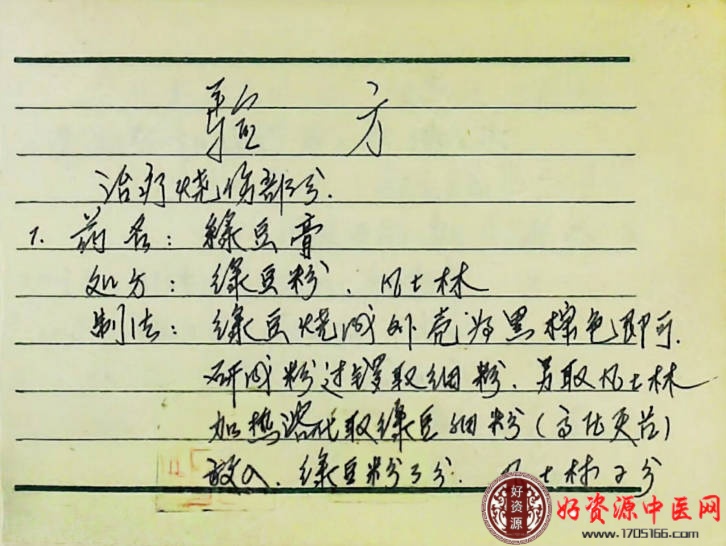 验 方
治疗烧伤部分.
1. 药名:绿豆膏
处方:绿豆粉、凡士林
制法:绿豆烧成外壳为黑棕色即可.
研成粉过锣取细粉.另取凡士林
加热溶化取绿豆细粉(高压灭菌)
放入.绿豆粉3分.凡士林7分
好资源
好资源中医网
www.1705166.com